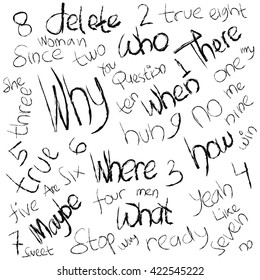 8 delete 2 true eight
woman who There
Since two you one my
she Question 1
three Why ten when no me
5 huh 9 nine
true 6 Where 3 now win
Are Six
five four men Yeah 4
Maybe what Like
7 sweet Stop why ready seven
no
www.shutterstock.com · 422545222